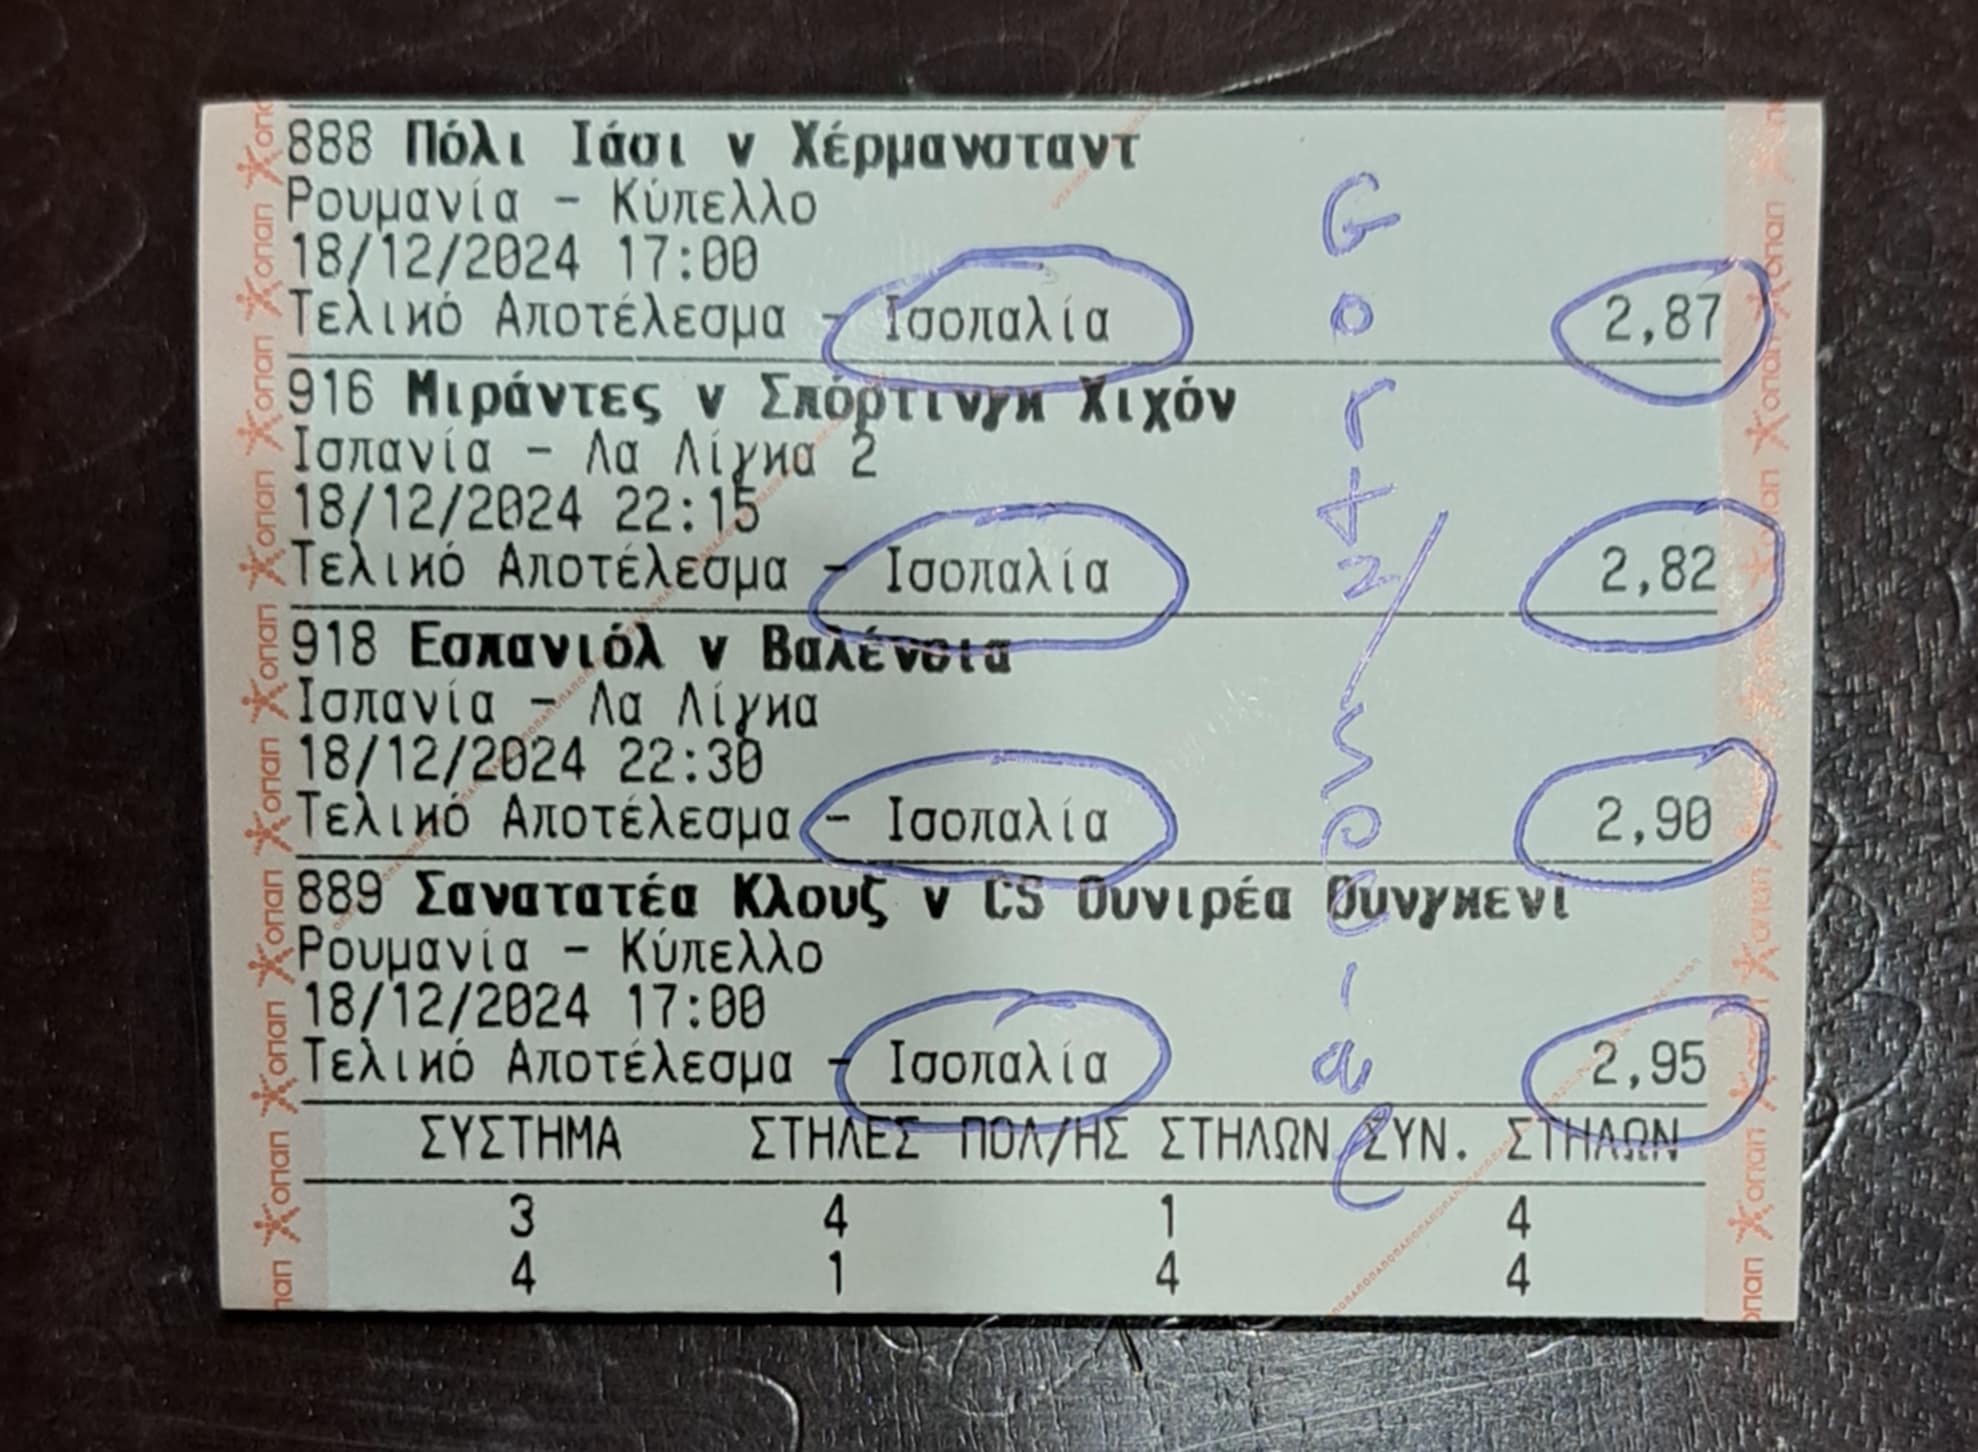 888 Πόλι Ιάσι v Χέρμανσταντ
Ρουμανία - Κύπελλο
18/12/2024 17:00
Τελικό Αποτέλεσμα - Ισοπαλία 2,87
916 Μιράντες v Σπόρτινγκ Χιχόν
Ισπανία - Λα Λίγκα 2
18/12/2024 22:15
Τελικό Αποτέλεσμα - Ισοπαλία 2,82
918 Εσπανιόλ v Βαλένσια
Ισπανία - Λα Λίγκα
18/12/2024 22:30
Τελικό Αποτέλεσμα - Ισοπαλία 2,90
889 Σανατατέα Κλουζ v CS Ουνιρέα Ουνγκενί
Ρουμανία - Κύπελλο
18/12/2024 17:00
Τελικό Αποτέλεσμα - Ισοπαλία 2,95
ΣΥΣΤΗΜΑ ΣΤΗΛΕΣ ΠΟΛ/ΗΣ ΣΤΗΛΩΝ ΣΥΝ. ΣΤΗΛΩΝ
3 4 1 4
4 1 4 4
οπαπ